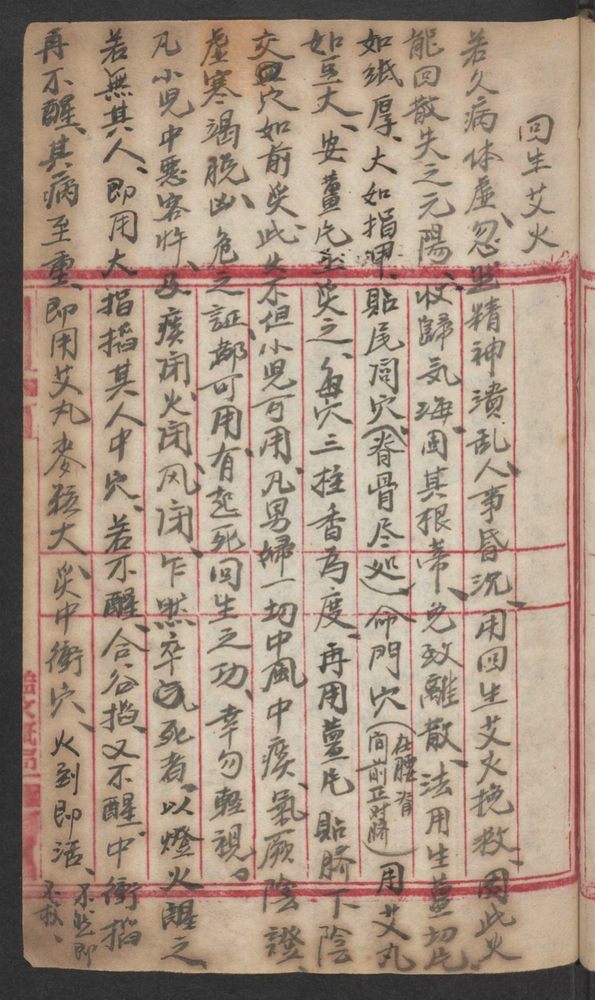 回生艾火
若久病体虛、忽然精神潰乱人事昏沉、用回生艾火挽救、因此火
能回散失之元陽、收歸気海固其根蒂、免致離散、法用生薑切片
如紙厚、大如指甲、貼尾閭穴（脊骨尽処）命門穴（在腰脊向前正对臍）用艾丸
如豆大、安薑片上炙之、每穴三柱香為度、再用薑片貼臍下陰
交穴如前炙、此火不但小児可用、凡男婦一切中風中痰、氣厥陰證、
虛寒竭脫、凶危之証、都可用、有起死回生之功、幸勿輕視。
凡小児中惡客忤、及痰闭火闭风闭、乍然卒死者、以燈火醒之
若無其人、即用大指掐其人中穴、若不醒、合谷掐、又不醒、中衝掐
再不醒、其病至重、即用艾丸麥粒大、炙中衝穴、火到即活、不然即不救、